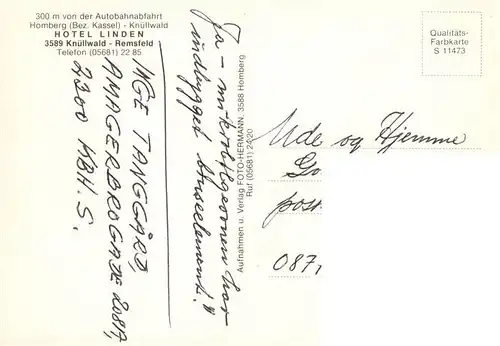 300 m von der Autobahnabfahrt
Homberg (Bez. Kassel) - Knüllwald
HOTEL LINDEN
3589 Knüllwald - Remsfeld
Telefon (05681) 22 85
INGE TANGGÅRD,
AMAGERBROGADE 208A,
2300 KBH. S.
Ja - mikrobølgeovnen har
indbygget
Aufnahmen u. Verlag FOTO-HERMANN, 3588 Homberg
Ruf (05681) 24 20
Qualitäts-
Farbkarte
S 11473
Ude og Hjemme
Go
post
087,